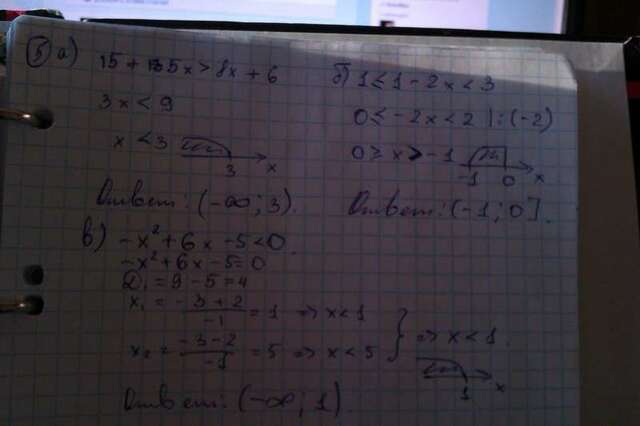 5 а) 15 + 5x > 8x + 6
3x < 9
x < 3
3 x
Ответ: (-∞; 3).
б) 1 ≤ 1 - 2x < 3
0 ≤ -2x < 2 | : (-2)
0 ≥ x > -1
-1 0 x
Ответ: (-1; 0].
в) -x² + 6x - 5 < 0
-x² + 6x - 5 = 0
D₁ = 9 - 5 = 4
x₁ = (-3 + 2)/(-1) = 1 => x < 1
x₂ = (-3 - 2)/(-1) = 5 => x < 5 } => x < 1.
1 x
Ответ: (-∞; 1)